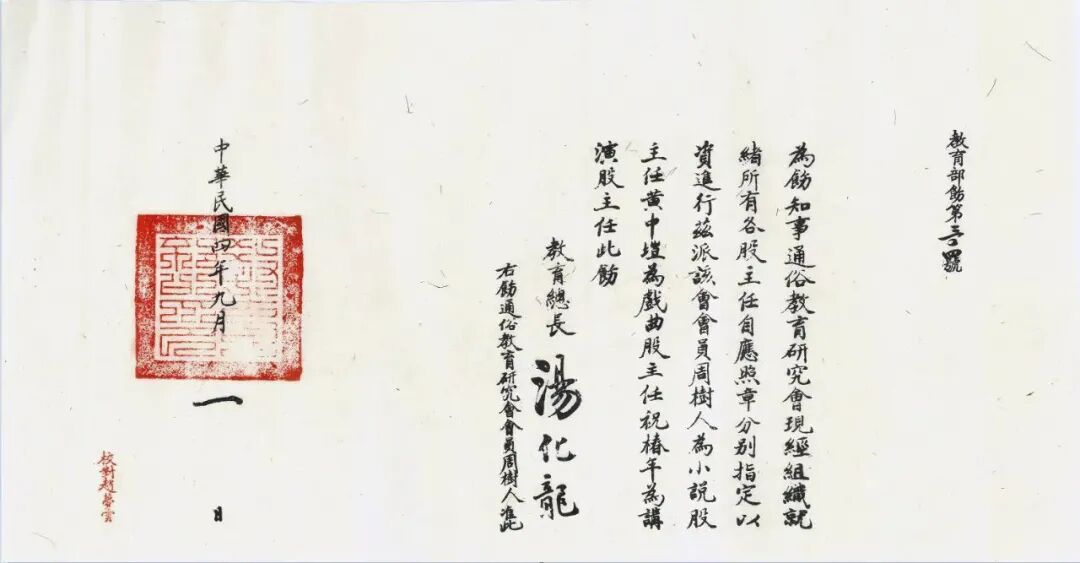 教育部飭第三〇四號
為飭知事通俗教育研究會現經組織就
緒所有各股主任自應照章分別指定以
資進行茲派該會會員周樹人為小說股
主任黃中塏為戲曲股主任祝椿年為講
演股主任此飭
教育總長 湯化龍
右飭通俗教育研究會會員周樹人准此
中華民國四年九月一日
校對趙